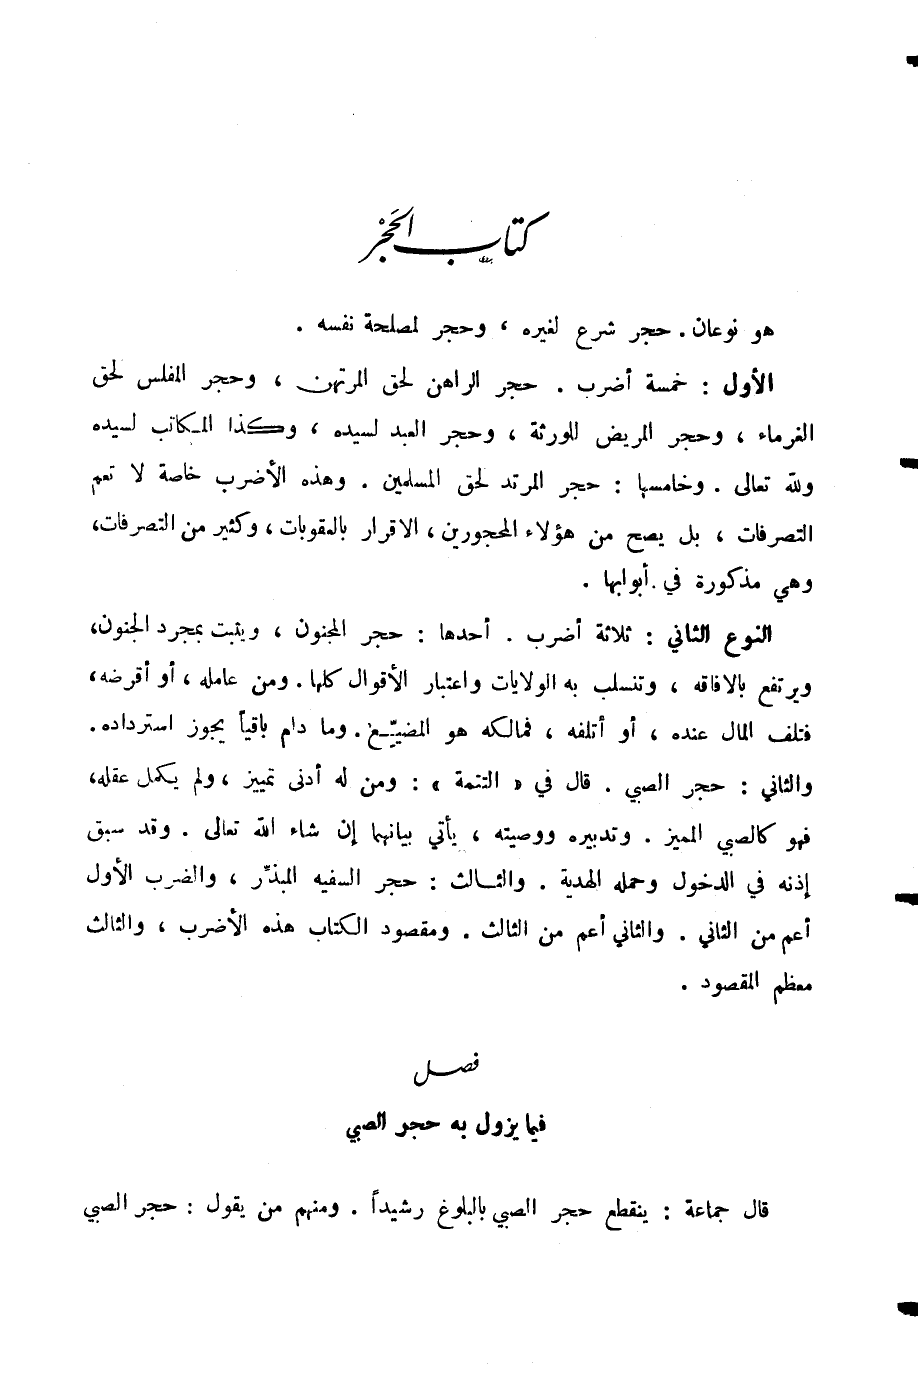 كتاب الحَجْر
هو نوعان . حجر شرع لغيره ، وحجر لمصلحة نفسه .
الأول : خمسة أضرب . حجر الراهن لحق المرتهن ، وحجر المفلس لحق
الغرماء ، وحجر المريض للورثة ، وحجر العبد لسيده ، وكذا المكاتب لسيده
ولله تعالى . وخامسها : حجر المرتد لحق المسلمين . وهذه الأضرب خاصة لا تعم
التصرفات ، بل يصح من هؤلاء المحجورين ، الاقرار بالعقوبات ، وكثير من التصرفات،
وهي مذكورة في أبوابها .
النوع الثاني : ثلاثة أضرب . أحدها : حجر المجنون ، ويثبت بمجرد الجنون،
ويرتفع بالافاقه ، وتنسلب به الولايات واعتبار الأقوال كلها . ومن عامله ، أو أقرضه،
فتلف المال عنده ، أو أتلفه ، فمالكه هو المضيِّع . وما دام باقياً يجوز استرداده .
والثاني : حجر الصبي . قال في « التتمة » : ومن له أدنى تمييز ، ولم يكمل عقله،
فهو كالصبي المميز . وتدبيره ووصيته ، يأتي بيانهما إن شاء الله تعالى . وقد سبق
إذنه في الدخول وحمله الهدية . والثالث : حجر السفيه المبذّر ، والضرب الأول
أعم من الثاني . والثاني أعم من الثالث . ومقصود الكتاب هذه الأضرب ، والثالث
معظم المقصود .
فصل
فيما يزول به حجر الصبي
قال جماعة : ينقطع حجر الصبي بالبلوغ رشيداً . ومنهم من يقول : حجر الصبي